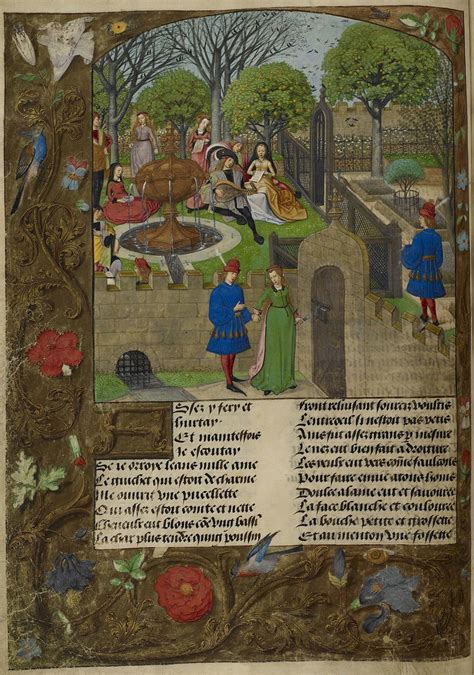 Assez y fery et
hurtay
Et maintesfois
Je escoutay
Se ie orroye leans nulle ame
Le guichet qui estoit de charme
Me ouurit vne pucellette
Qui assez estoit cointe et nette
Cheueulx eut blons cõe vng bassi
La char plus tendre qung poussin
Front reluisant sourcis voultis
Lentreoeil si nestoit pas petis
Ains fut assez grans p mesure
Le nez eut bien fait a droiture
Les yeulx eut vers cõme faulcons
Pour faire enuie a tous homs
Doulce alaine eut et sauouree
La face blanche et coulouree
La bouche petite et grossette
Et au menton vne fossette